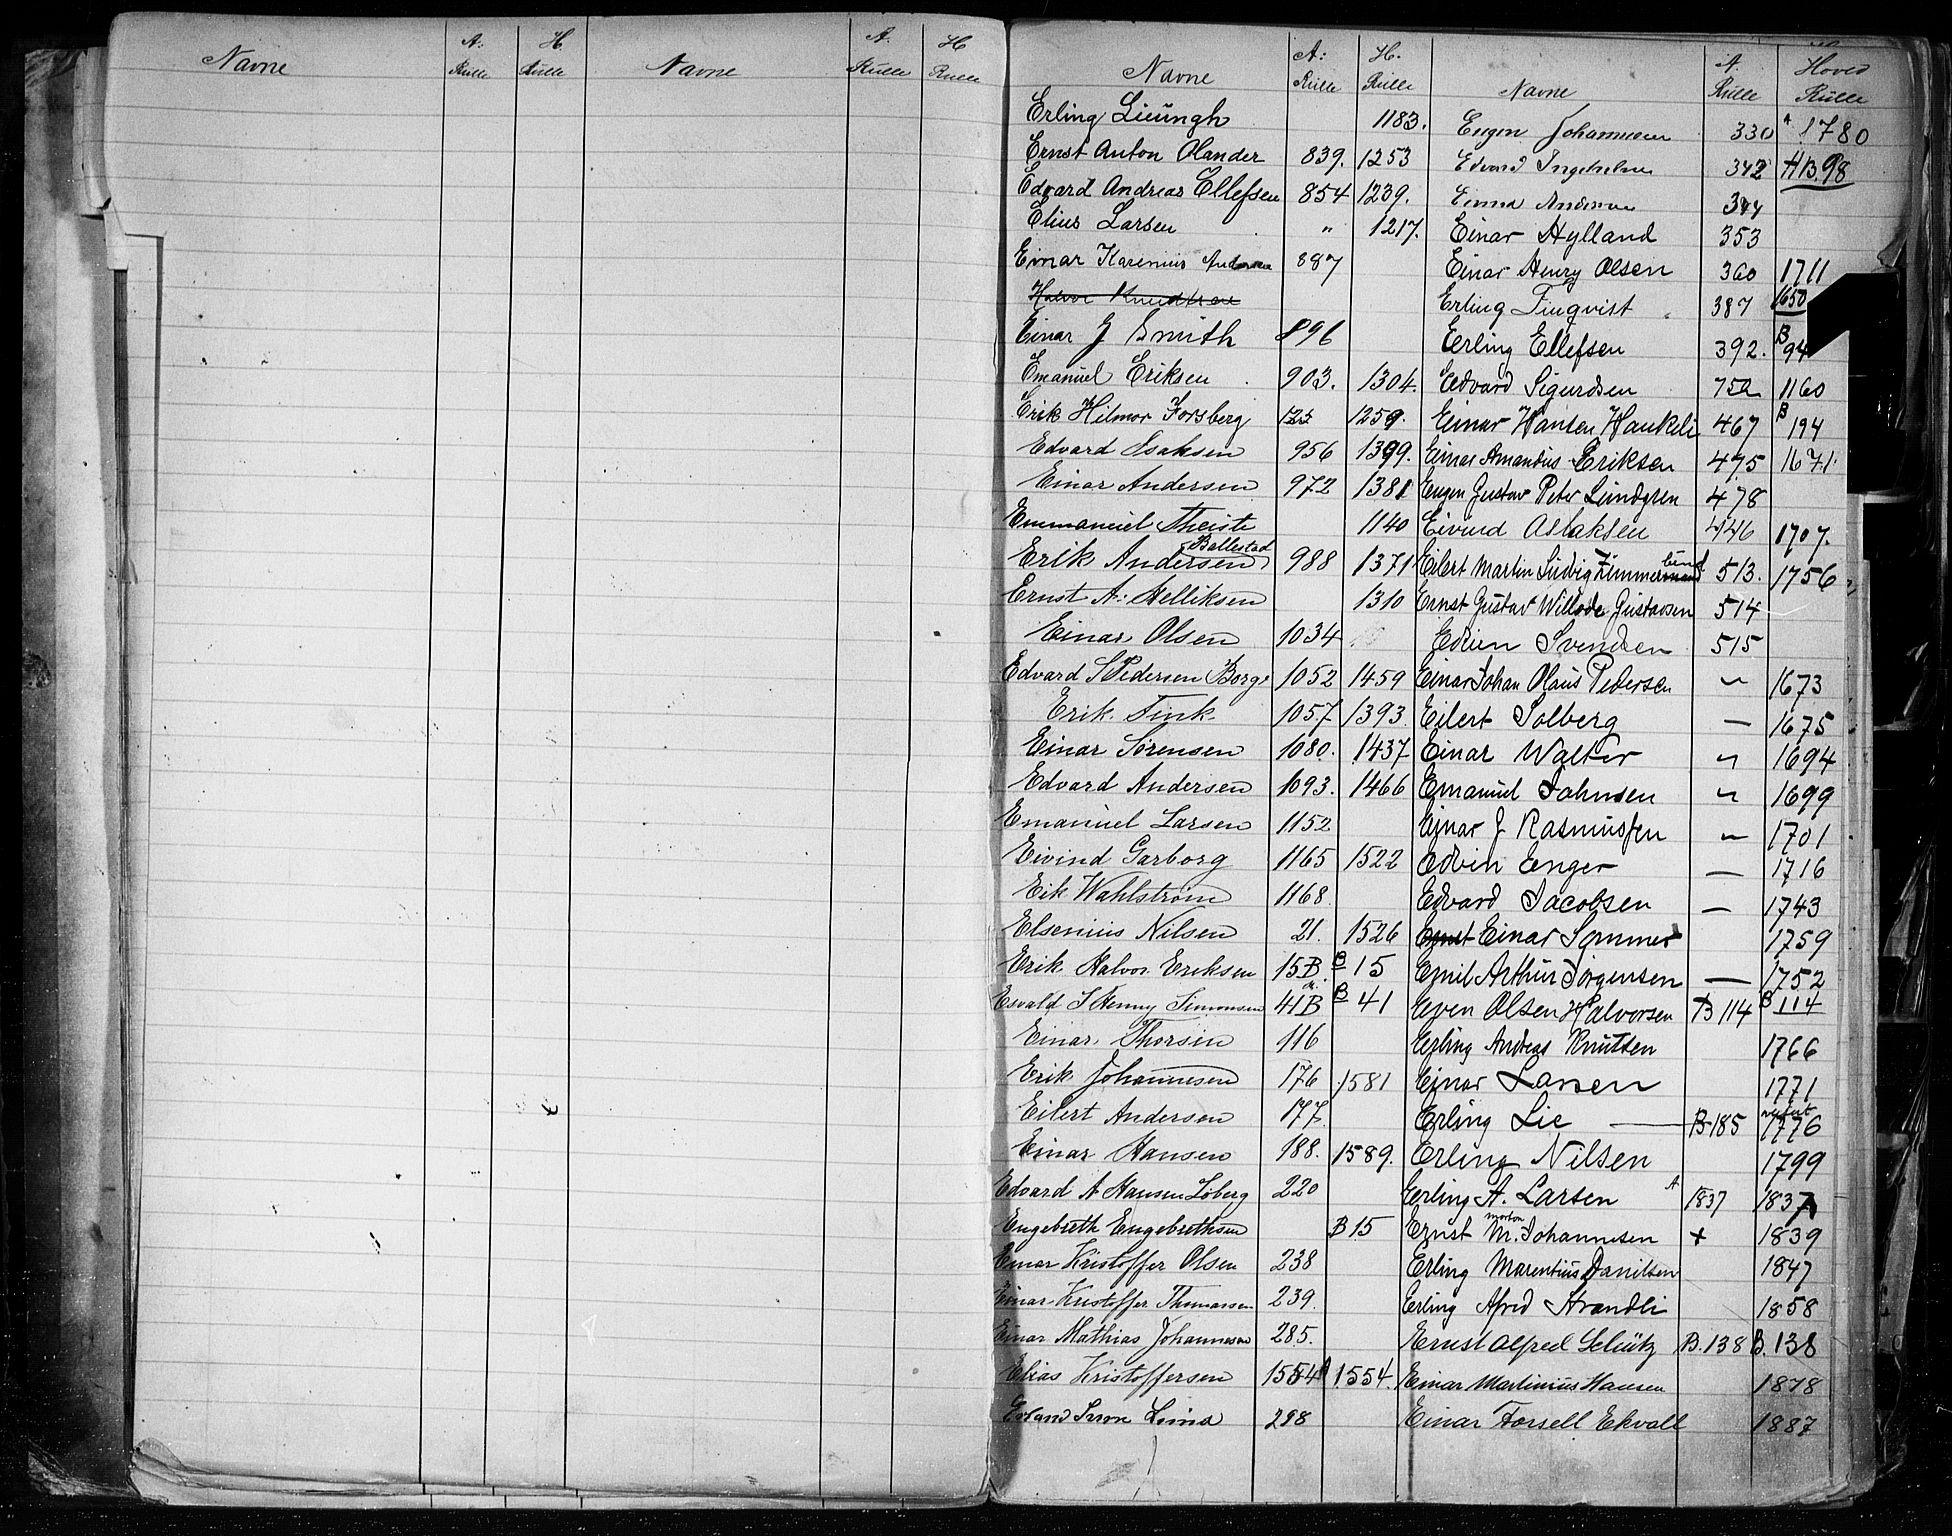 Navne A: Rulle H. Rulle Navne A. Rulle H Rulle
Navne A: Rulle H. Rulle Navne A. Rulle Hoved Rulle
Erling Lieungh 1183. Eugen Johannesen 330 A 1780
Ernst Anton Olander 839. 1253 Edvard 342 HB.98
Edvard Andreas Ellefsen 854 1239. 344
Elius Larsen " 1217. Einar Hylland 353
Einar Karenius Andersen 887 Einar Henry Olsen 360 1711
Halvor Knudsen Erling Finqvist 387 1650
Einar J Smith 896 Erling Ellefsen 392. B 94
Emanuel Eriksen 903. 1304. Edvard Sigurdsen 752 1160
Erik Hilmar Forsberg 125 1259. Einar Hansen Haukeli 467 B 194
Edvard Isaksen 956 1399. Einar Amandus Eriksen 475 1671.
Einar Andersen 972 1381 Eugen Gustav Peter Lundgren 478
Emmanuel Theiste 1140 Eivind Aslaksen 446 1707.
Erik Andersen Ballestad 988 1371 Eilert Martin Ludvig Zimmermand 513. 1756
Ernst A: Helliksen 1310 Ernst Gustav Gustavsen 514
Einar Olsen 1034 Edvin Svendsen 515
Edvard S Pedersen Borge 1052 1459 Einar Johan Olaus Pedersen " 1673
Erik Fink 1057 1393 Eilert Solberg — 1675
Einar Sørensen 1080. 1437 Einar Walter " 1694
Edvard Andersen 1093. 1466 Emanuel Johnsen " 1699
Emanuel Larsen 1152 Einar J Rasmussen — 1701
Eivind Garborg 1165 1522 Edvin Enger — 1716
Eik Wahlstrøm 1168 Edvard Jacobsen — 1743
Elsenius Nilsen 21. 1526 Ernst Einar Sommer 1759
Erik Halvor Eriksen 15B. B 15 Emil Arthur Jørgensen — 1752
Esvald S Henny Simonsen 41B B 41 Even Olsen Halvorsen B 114 B 114
Einar Thorsen 116 Erling Andreas Knutsen 1766
Erik Johannesen 176 1581 Einar Larsen 1771
Eilert Andersen 177. Erling Lie — B 185 1776
Einar Hansen 188. 1589. Erling Nilsen 1799
Edvard A Hansen Løberg 220 Erling A. Larsen A 1837 1837
Engebreth Engebrethsen B 15 Ernst M. Johannesen morton + 1839
Einar Kristoffer Olsen 238 Erling Marentius Danilsen 1847
Einar Kristoffer Thomassen 239. Erling Alfred Strandli 1858
Einar Mathias Johannesen 285. Ernst Alfred Schütz B. 138 B. 138
Elias Kristoffersen 1554 1554. Einar Martinius Hansen 1878
Lima 298 Einar Forsell Ekvall 1887